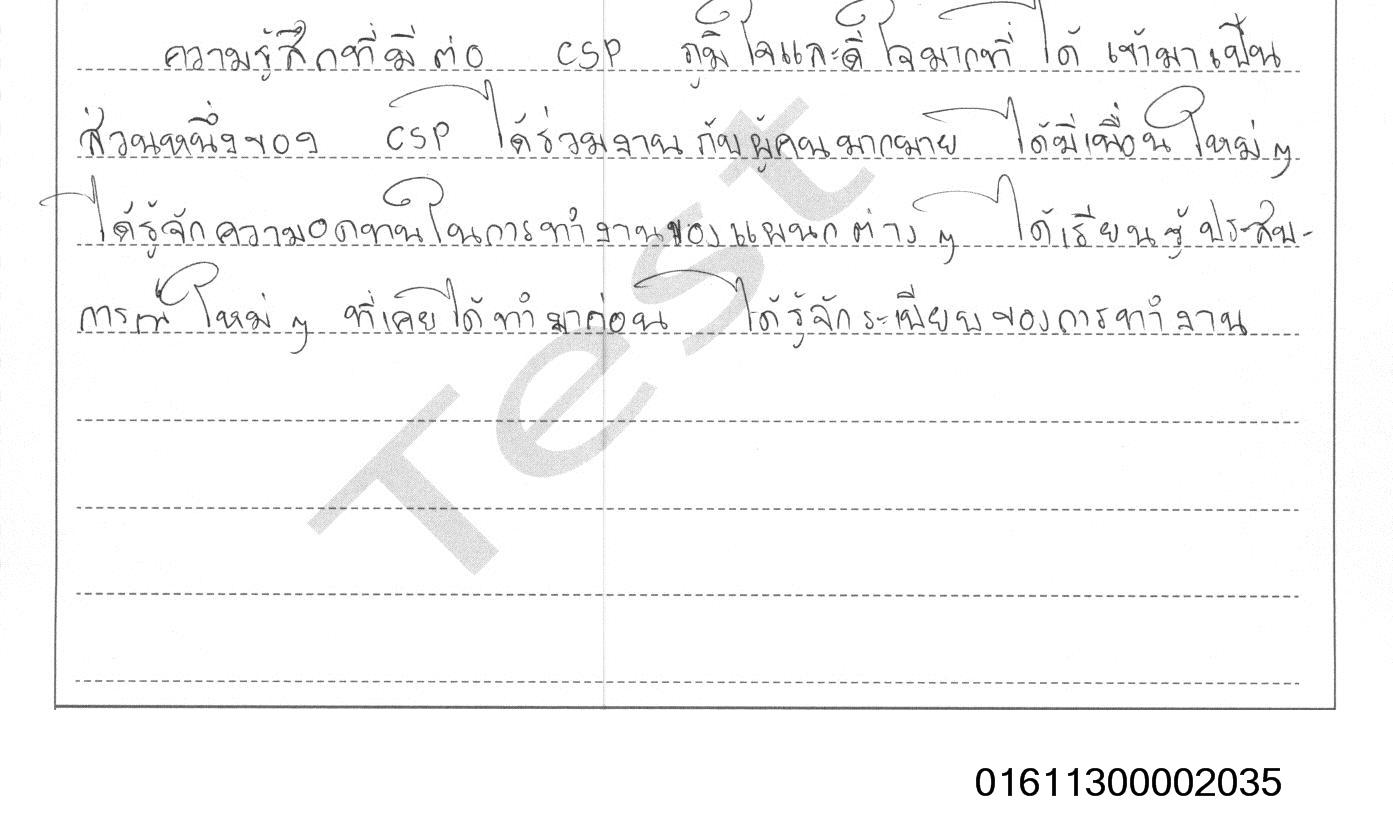 ความรู้สึกที่มีต่อ CSP ภูมิใจและดีใจมากที่ได้ เข้ามาเป็น
ส่วนหนึ่งของ CSP ได้ร่วมงานกับผู้คนมากมาย ได้มีเพื่อนใหม่ ๆ
ได้รู้จักความอดทนในการทำงานของแผนกต่าง ๆ ได้เรียนรู้ ประสบ-
การณ์ใหม่ ๆ ที่เคยได้ทำมาก่อน ได้รู้จักระเบียบของการทำงาน
Test
01611300002035